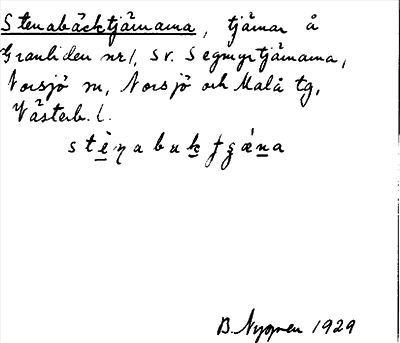 Stenabäcktjärnarna, tjärnar å
Granliden nr 1, sv. Segmyrtjärnarna,
Norsjö sn, Norsjö och Malå tg,
Västerb. l.
B. Nygren 1929